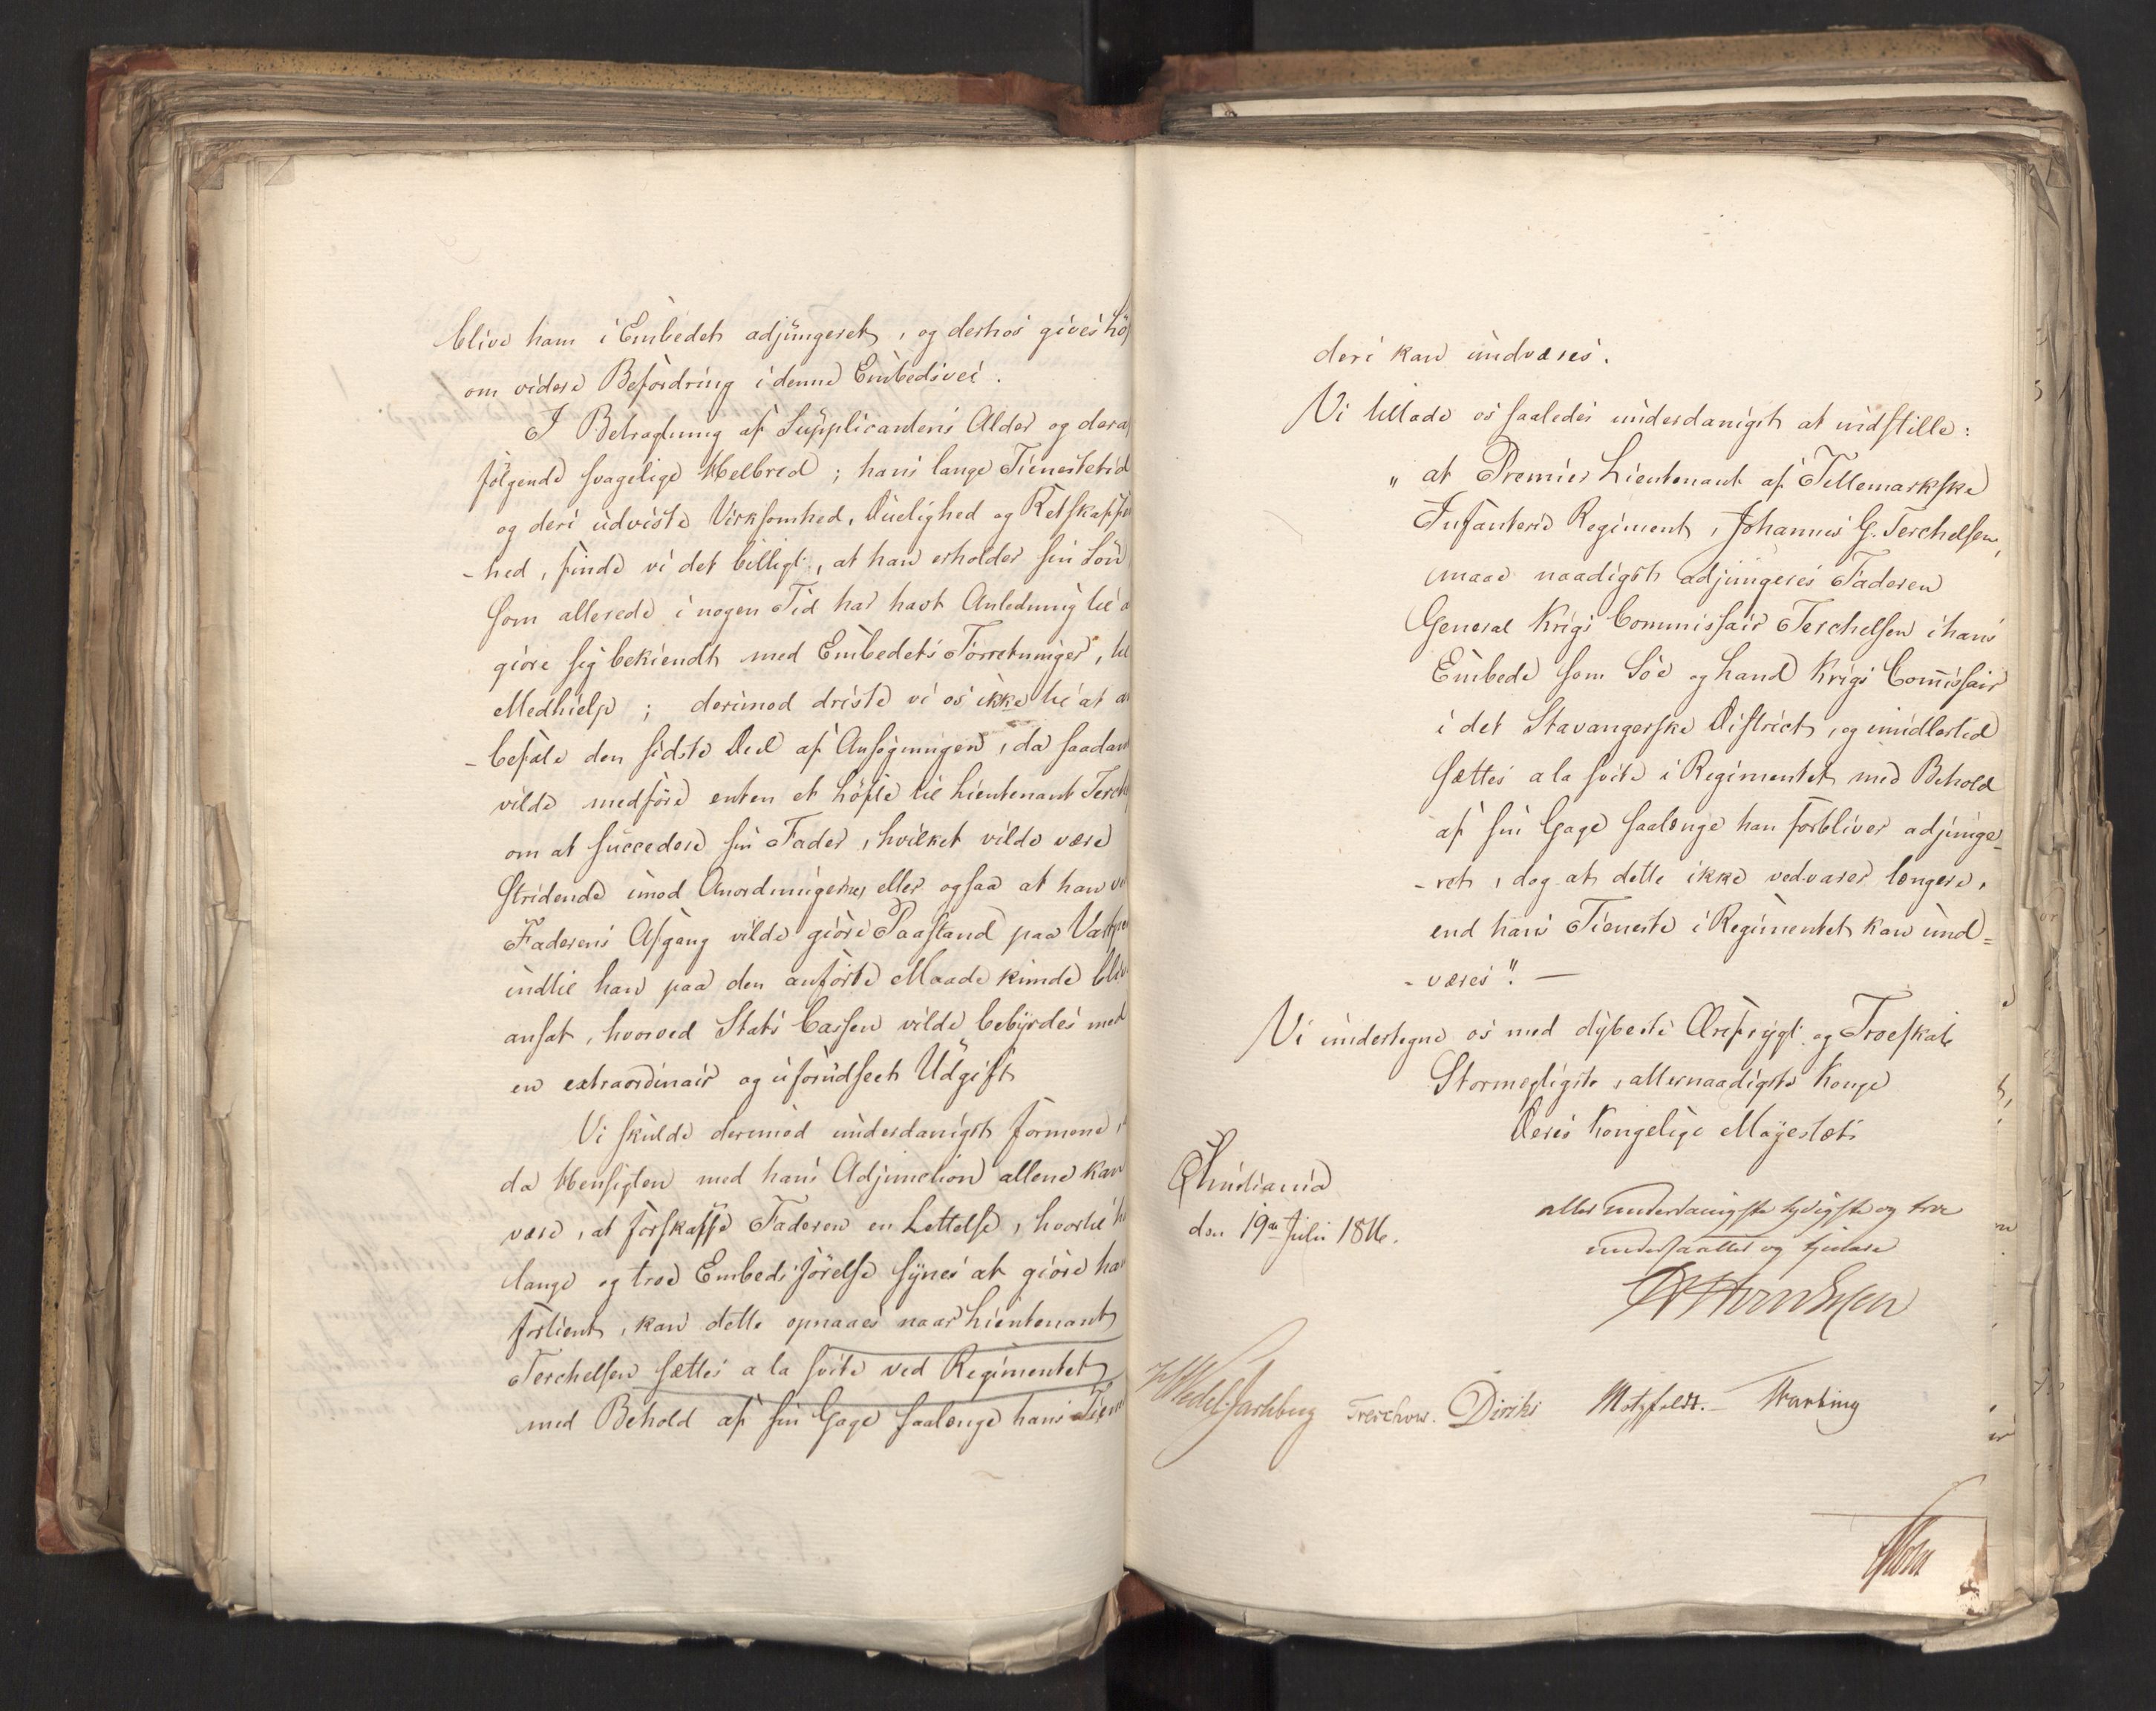 blive ham i Embedet adjungeret, og derhos gives hø
om videre Befordring i denne Embedsvei.
I Betragtning af Supplicantens Alder og dera
følgende svagelige Helbred; hans lange Tienestetid
og deri udviste Virksomhed, Duelighed og Retskaffen
-hed, finde vi det billigt, at han erholder sin Søn
som allerede i nogen Tid har havt Anledning til a
giøre sig bekiendt med Embedets Forretninger, til
Medhielp; derimod driste vi os ikke til at an
-befale den sidste Deel af Ansøgningen, da saadant
vilde medføre enten et Løfte til Lieutenant Terch
om at succedere sin Fader, hvilket vilde være
stridende imod Anordningerne, eller ogsaa at han ve
Faderens Afgang vilde giøre Paastand paa Vartpe
indtil han paa den anførte Maade kunde bliv
ansat, hvorved Stats Cassen vilde bebyrdes med
en extraordinair og uforudseet Udgift
Vi skulde derimod underdanigst formene,
da Hensigten med hans Adjunction allene kan
være, at forskaffe Faderen en Lettelse, hvortil h
lange og troe Embedsførelse synes at giøre ha
fortient, kan dette opnaaes naar Lieutenant
Terchelsen sættes a la svite ved Regimentet
med Behold af sin Gage saalænge hans Tiene
deri kan undværes.
Vi tillade os saaledes underdanigst at indstille:
" at Premier Lieutenant af Tellemarkske
Infanterie Regiment, Johannes G. Terchelsen,
maae naadigst adjungeres Faderen
General Krigs Commissair Terchelsen i hans
Embede som Søe og Land Krigs Com̅issair
i det Stavangerske District, og imidlertid
sættes a la svite i Regimentet med Behold
af sin Gage saalænge han forbliver adjunge-
-ret, dog at dette ikke vedvarer længere,
end hans Tieneste i Regimentet kan und=
-væres". —
Vi undertegne os med dybeste Ærefrygt og Troeskab
Stormægtigste, allernaadigste Konge
Deres Kongelige Mayestæts
Christiania
den 19de Julii 1816.
allerunderdanigste lydigste og troe
undersaatter og tjenere
H Wedel-Jarlsberg Treschow. Diriks Motzfeldt.